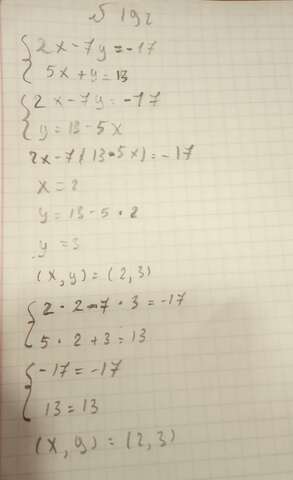 № 192
2x-7y=-17
5x+y=13
2x-7y=-17
y=13-5x
2x-7(13-5x)=-17
x=2
y=13-5·2
y=3
(x,y)=(2,3)
2·2-7·3=-17
5·2+3=13
-17=-17
13=13
(x,y)=(2,3)